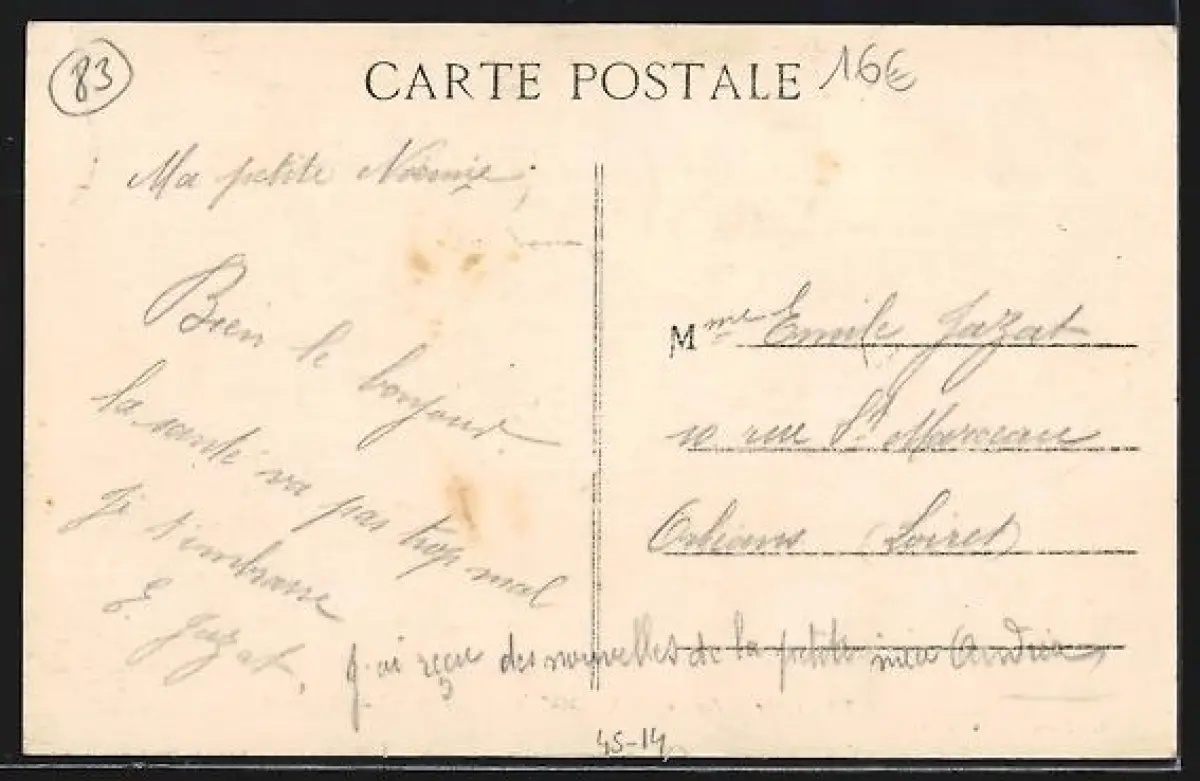 83
CARTE POSTALE
16€
Ma petite Noémie,
Bien le bonjour
la santé va pas trop mal
Je t'embrasse
E. Jazat,
Mme Emile Jazat
10 rue St Marceau
Orléans (Loiret)
J'ai reçu des nouvelles de la petite
45-14